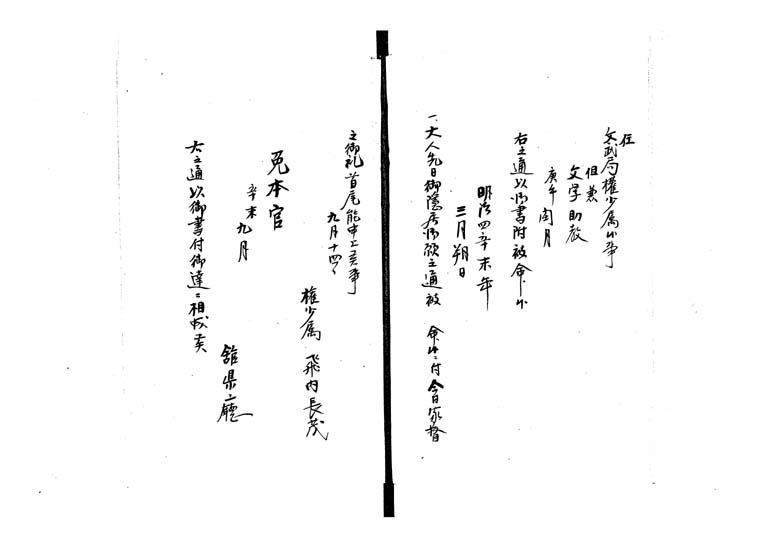 任
文武局権少属候事
但兼
文学助教
庚午閏月
右之通以御書附被命候
明治四辛未年
三月朔日
一、大人先日御隠居御願之通被 命候ニ付今日家督
之御礼首尾能申上候事
九月十四日
権少属 飛内長茂
免本官
辛未九月
舘県庁
右之通以御書付御達ニ相成候